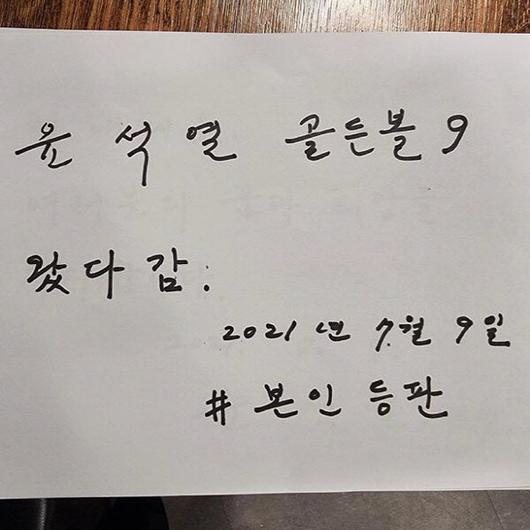 윤석열 골든볼 9
왔다감.
2021 년 7월 9일
# 본인 등판